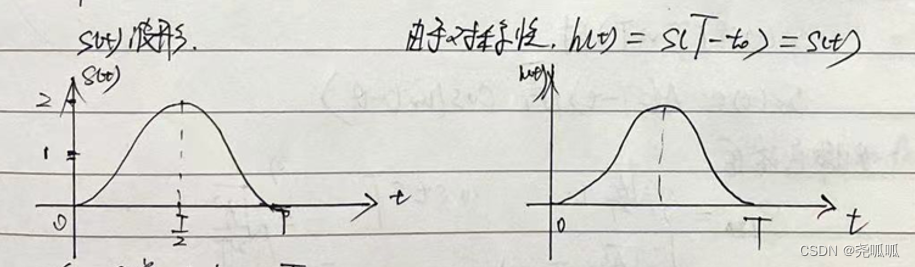 S(t)波形.
由于对称性, h(t) = S(T-t₀) = S(t)
S(t)
2
1
0
T/2
T
t
h(t)
0
T
t
CSDN @尧呱呱